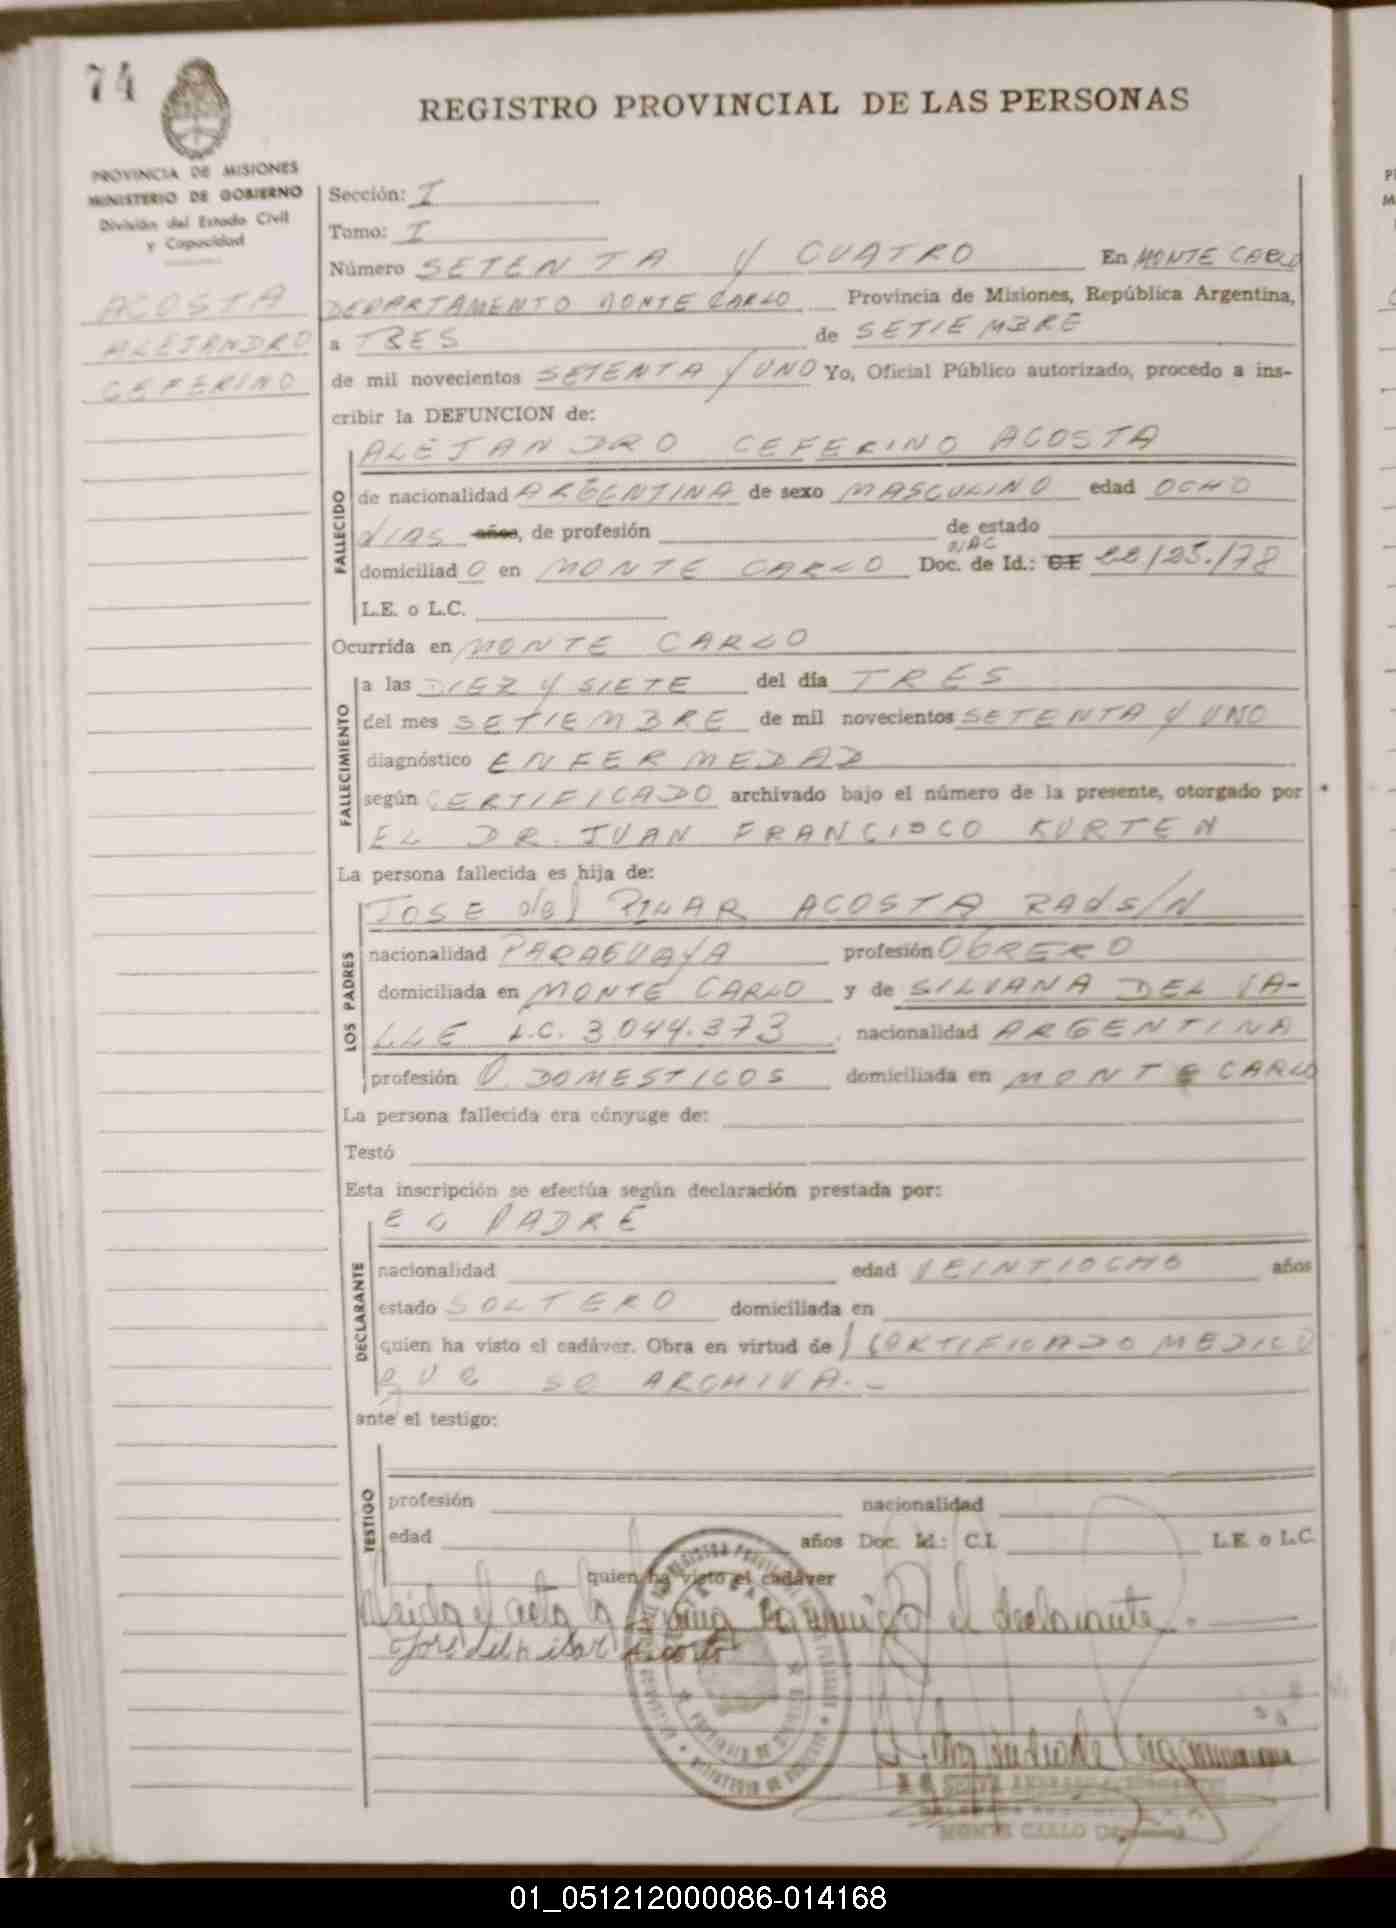 74
REGISTRO PROVINCIAL DE LAS PERSONAS
PROVINCIA DE MISIONES
MINISTERIO DE GOBIERNO
División del Estado Civil
y Capacidad
ACOSTA
ALEJANDRO
CEFERINO
Sección: I
Tomo: I
Número SETENTA Y CUATRO En MONTE CARLO
DEPARTAMENTO MONTE CARLO Provincia de Misiones, República Argentina,
a TRES de SETIEMBRE
de mil novecientos SETENTA Y UNO Yo, Oficial Público autorizado, procedo a ins-
cribir la DEFUNCION de:
ALEJANDRO CEFERINO ACOSTA
FALLECIDO
de nacionalidad ARGENTINA de sexo MASCULINO edad OCHO
dIAS años, de profesión de estado
NAC
domiciliad O en MONTE CARLO Doc. de Id.: CI 22/25./78
L.E. o L.C.
Ocurrida en MONTE CARLO
FALLECIMIENTO
a las DIEZ Y SIETE del día TRES
del mes SETIEMBRE de mil novecientos SETENTA Y UNO
diagnóstico ENFERMEDAD
según CERTIFICADO archivado bajo el número de la presente, otorgado por
EL DR. JUAN FRANCISCO KURTEN
La persona fallecida es hija de:
LOS PADRES
JOSE del PILAR ACOSTA RAdS/N
nacionalidad PARAGUAYA profesión ObRERO
domiciliada en MONTE CARLO y de SILVANA DEL VA-
LLE L.C. 3044.373 nacionalidad ARGENTINA
profesión Q. DOMESTICOS domiciliada en MONTE CARLO
La persona fallecida era cónyuge de:
Testó
Esta inscripción se efectúa según declaración prestada por:
DECLARANTE
EL PADRE
nacionalidad edad VEINTIOCHO años
estado SOLTERO domiciliada en
quien ha visto el cadáver. Obra en virtud de CERTIFICADO MEDICO
QUE SE ARCHIVA.-
ante el testigo:
TESTIGO
profesión nacionalidad
edad años Doc. Id.: C.I. L.E. o L.C.
quien ha visto el cadáver
Leida el acta la firma conmigo el declarante.
José del Pilar Acosta
MONTE CARLO
01_051212000086-014168